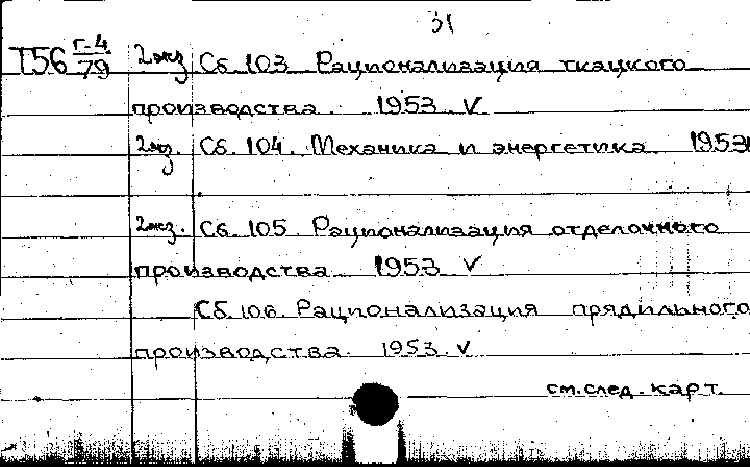 31
Т56 г-4/79 2экз Сб. 103 Рационализация ткацкого
производства. 1953 V
2экз. Сб. 104. Механика и энергетика 1953
2экз. Сб. 105 Рационализация отделочного
производства 1953 V
Сб. 106. Рационализация прядильного
производства. 1953. V
см. след. карт.